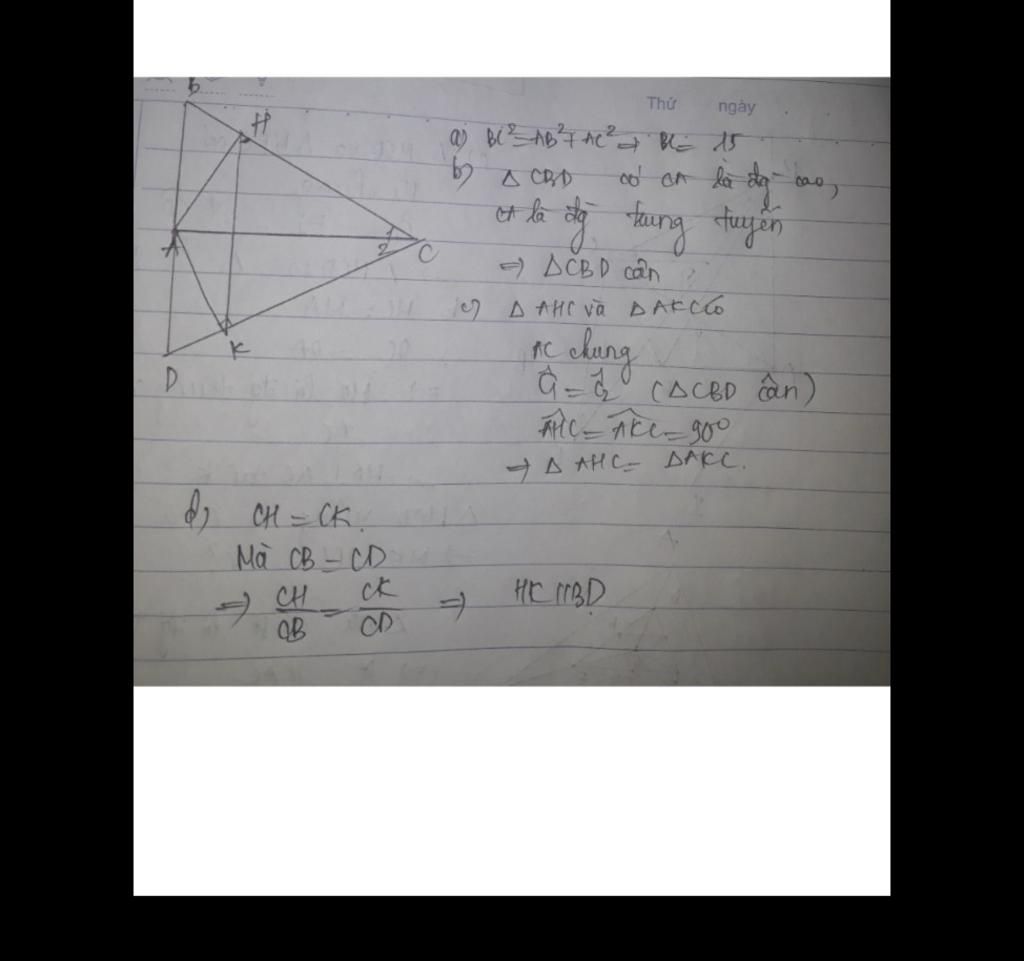 Thứ ngày
B
H
A
1
2
C
K
D
a) BC² = AB² + AC² ⇒ BC = 15
b) Δ CBD có CA là đg cao,
CA là đg trung tuyến
⇒ Δ CBD cân
c) Δ AHC và Δ AKC có
AC chung
Ĉ1 = Ĉ2 (Δ CBD cân)
AHC = AKC = 90°
⇒ Δ AHC = Δ AKC.
d) CH = CK.
Mà CB = CD
⇒ CH/CB = CK/CD ⇒ HK // BD